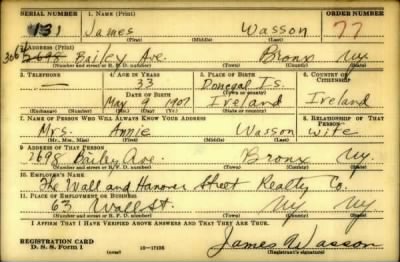 SERIAL NUMBER 1. NAME (Print) ORDER NUMBER
131 James Wasson 77
(First) (Middle) (Last)
2. ADDRESS (Print)
2698 Bailey Ave. Bronx N.Y.
(Number and street or R. F. D. number) (Town) (County) (State)
3. TELEPHONE 4. AGE IN YEARS 5. PLACE OF BIRTH 6. COUNTRY OF CITIZENSHIP
— 33 Donegal Is.
DATE OF BIRTH (Town or county)
May 9 1907 Ireland Ireland
(Exchange) (Number) (Mo.) (Day) (Yr.) (State or country)
7. NAME OF PERSON WHO WILL ALWAYS KNOW YOUR ADDRESS 8. RELATIONSHIP OF THAT PERSON
Mrs. Annie Wasson wife
(Mr., Mrs., Miss) (First) (Middle) (Last)
9. ADDRESS OF THAT PERSON
2698 Bailey Ave. Bronx N.Y.
(Number and street or R. F. D. number) (Town) (County) (State)
10. EMPLOYER'S NAME
The Wall and Hanover Street Realty Co.
11. PLACE OF EMPLOYMENT OR BUSINESS
63 Wall St. NY NY
(Number and street or R. F. D. number) (Town) (County) (State)
I AFFIRM THAT I HAVE VERIFIED ABOVE ANSWERS AND THAT THEY ARE TRUE.
REGISTRATION CARD
D. S. S. Form 1 James Wasson
(Registrant's signature)